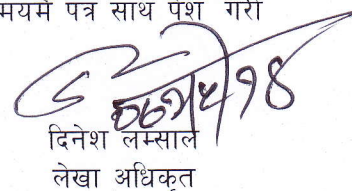 मयमै पत्र साथ पेश गरी
दिनेश लम्साल
लेखा अधिकृत